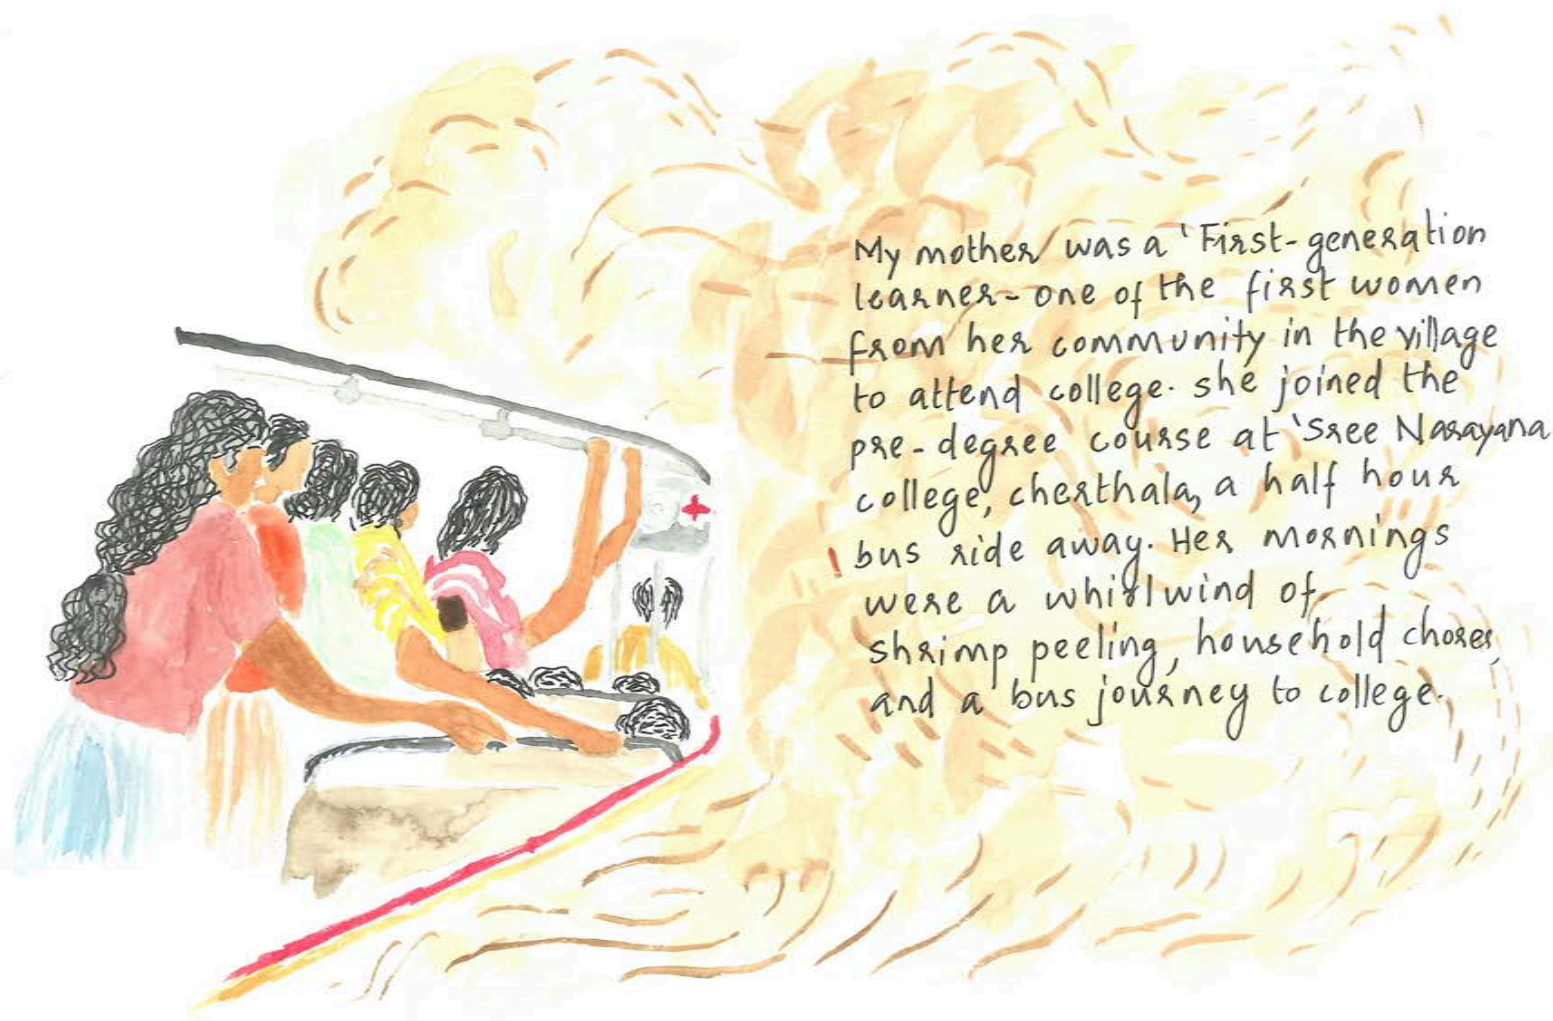 My mother was a 'First-generation
learner- one of the first women
from her community in the village
to attend college. she joined the
pre-degree course at 'Sree Narayana
college, cherthala, a half hour
bus ride away. Her mornings
were a whirlwind of
shrimp peeling, household chores,
and a bus journey to college.